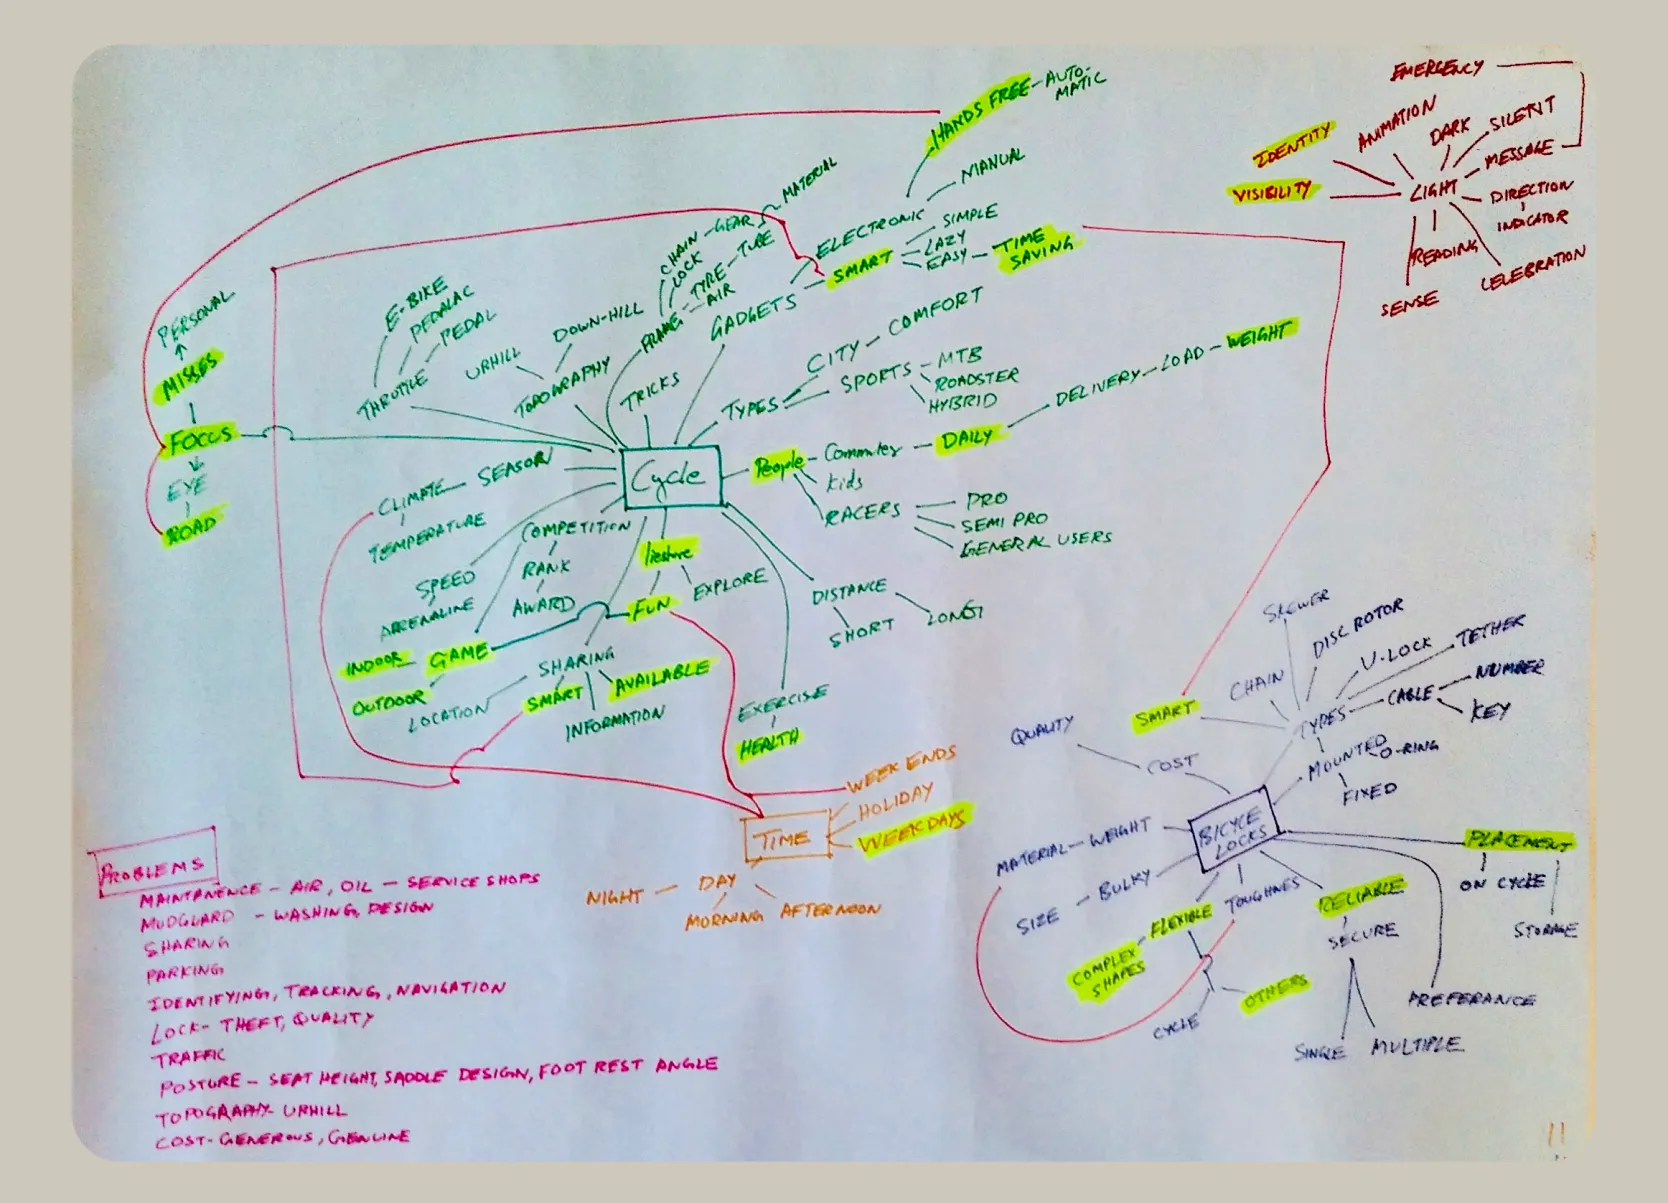 EMERGENCY
HANDS FREE - AUTO-
MATIC
IDENTITY
ANIMATION
DARK
SILENT
MESSAGE
VISIBILITY
LIGHT
DIRECTION
INDICATOR
READING
CELEBRATION
SENSE
MANUAL
MATERIAL
ELECTRONIC
SIMPLE
LAZY
EASY - TIME
SAVING
SMART
GADGETS
CHAIN - GEAR
LOCK
TYRE - TUBE
AIR
FRAME
PERSONAL
MISSES
FOCUS
EYE
ROAD
E-BIKE
PEDALAC
PEDAL
THROTTLE
UPHILL
DOWN-HILL
TOPOGRAPHY
TRICKS
TYPES
CITY - COMFORT
SPORTS - MTB
ROADSTER
HYBRID
Cycle
People - Commuter - DAILY - DELIVERY - LOAD - WEIGHT
Kids
RACERS
PRO
SEMI PRO
GENERAL USERS
CLIMATE - SEASON
TEMPERATURE
SPEED
ADRENALINE
COMPETITION
RANK
AWARD
liesure
FUN
EXPLORE
DISTANCE
SHORT
LONG
INDOOR
GAME
OUTDOOR
SHARING
LOCATION
SMART
AVAILABLE
INFORMATION
EXERCISE
HEALTH
TIME
WEEK ENDS
HOLIDAY
WEEKDAYS
NIGHT - DAY
MORNING
AFTERNOON
SKEWER
DISC ROTOR
U-LOCK
TETHER
CHAIN
CABLE
NUMBER
KEY
SMART
TYPES
MOUNTED
O-RING
FIXED
QUALITY
COST
BICYCLE
LOCKS
MATERIAL - WEIGHT
SIZE - BULKY
FLEXIBLE
COMPLEX
SHAPES
CYCLE
OTHERS
TOUGHNES
RELIABLE
SECURE
SINGLE
MULTIPLE
PREFERANCE
PLACEMENT
ON CYCLE
STORAGE
PROBLEMS
MAINTANENCE - AIR, OIL - SERVICE SHOPS
MUDGUARD - WASHING, DESIGN
SHARING
PARKING
IDENTIFYING, TRACKING, NAVIGATION
LOCK - THEFT, QUALITY
TRAFFIC
POSTURE - SEAT HEIGHT, SADDLE DESIGN, FOOT REST ANGLE
TOPOGRAPHY - UPHILL
COST - GENEROUS, GENUINE